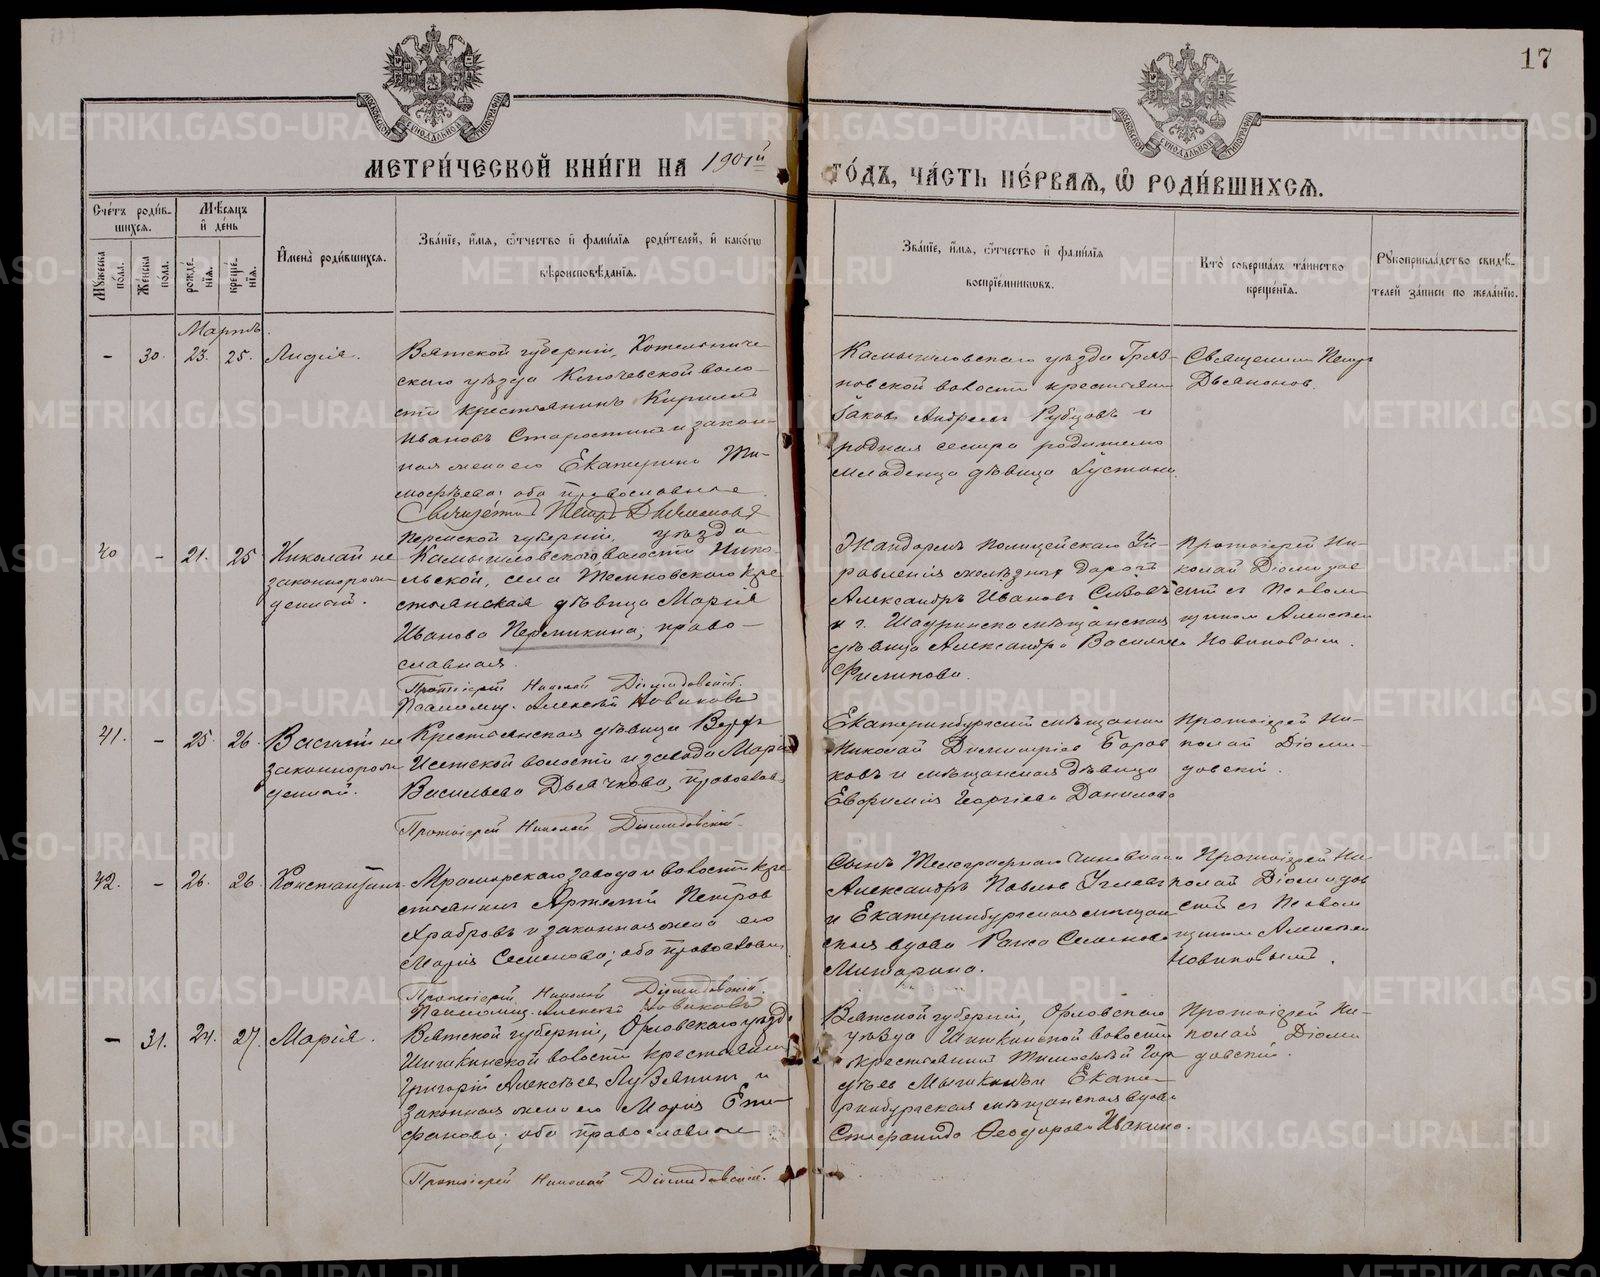 17
МЕТРИ́ЧЕСКОЙ КНИ́ГИ НА 1901й ГО́ДЪ, ЧА́СТЬ ПЕ́РВАѦ, Ѡ҆ РОДИ́ВШИХСѦ.
Сче́тъ роди́вшихся.
Мѣ́сяцъ и҆ де́нь
И҆мена̀ роди́вшихся.
Зва́нїе, и҆́мя, ѻ҆́тчество и҆ фами́лїя роди́телей, и҆ како́гѡ
вѣроисповѣ́данїя.
Зва́нїе, и҆́мя, ѻ҆́тчество и҆ фами́лїя
воспрїе́мникѡвъ.
Кто̀ соверша́лъ та́инство
креще́нїя.
Рꙋкоприкла́дство свидѣ́-
телей за́писи по жела́нїю.
Мꙋ́жеска по́ла.
Же́нска по́ла.
рожде́-
нїя.
креще́-
нїя.
Мартъ.
- 30. 23. 25. Лидія.
Вятской губерніи, Котельниче-
скаго уѣзда Ключевской воло-
сти крестьянинъ Кириллъ
Ивановъ Старостинъ и закон-
ная жена его Екатерина Ти-
моѳѣева; оба православные.
Священникъ Петръ Дьяконовъ
Камышловскаго уѣзда Гряз-
новской волости крестьянинъ
Іаковъ Андреевъ Рубцовъ и
родная сестра родителю
младенца дѣвица Іустина.
Священникъ Петръ
Дьяконовъ.
40 - 21. 25 Николай не
законнорож
денный.
Пермской губерніи, уѣзда
Камышловскаго, волости Нико-
льской, села крестьянская дѣвица Марія
Иванова Пермикина, право-
славная.
Протоіерей Николай Діомидовскій.
Псаломщ. Алексѣй Новиковъ
Жандармъ Полицейскаго Уп-
равленія желѣзныхъ дорогъ
Александръ Ивановъ Сизовъ
и г. Шадринска мѣщанская
дѣвица Александра Васильева
Филипова.
Протоіерей Ни-
колай Діомидов
скій съ Псалом
щикомъ Алексѣем
Новиковым.
41. - 25. 26. Василій не
законнорож
денный.
Крестьянская дѣвица Верхъ
Исетской волости и завода Марія
Васильева Дьячкова, православ.
Протоіерей Николай Діомидовскій.
Екатеринбургскій мѣщанин
Николай Димитріев Боров
ковъ и мѣщанская дѣвица
Евфимія Георгіева Данилова
Протоіерей Ни-
колай Діоми-
довскій.
42. - 26. 26. Константинъ.
Мраморскаго завода и волости кре
стьянинъ Артемій Петров
Храбровъ и законная жена его
Марія Семенова; оба православные.
Протоіерей Николай Діомидовскій.
Псаломщ. Алексѣй Новиковъ
Сынъ Телеграфнаго чиновника
Александръ Павлов Углевъ
и Екатеринбургская мѣщан
ская вдова Раиса Семенова
Митарина.
Протоіерей Ни
колай Діомидов
скій съ Псалом
щиком Алексѣем
Новиковымъ.
- 31. 24. 27. Марія.
Вятской губерніи, Орловскаго уѣзда
Шишкинской волости крестьянин
Григорій Алексѣев Лузянин и
законная жена его Марія Епи-
фанова; оба православные
Протоіерей Николай Діомидовскій.
Вятской губерніи, Орловскаго
уѣзда Шишкинской волости
крестьянин Тимоѳѣй Гор
дѣев Мышкинъ и Екате-
ринбургская мѣщанская вдова
Стефанида Ѳеодорова Ивакина.
Протоіерей Ни-
колай Діоми
довскій.
METRIKI.GASO-URAL.RU